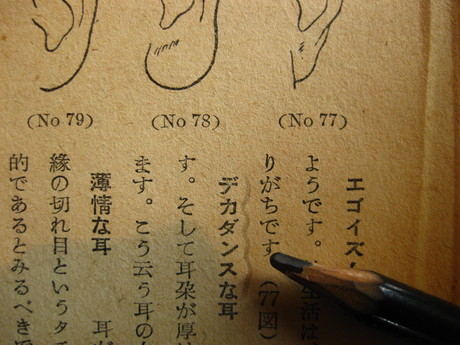 (No 79) (No 78) (No 77)
エゴイズ
ようです。
りがちです。(77図)
デカダンスな耳
す。そして耳朶が厚
ます。こう云う耳の
薄情な耳
縁の切れ目というタ
的であるとみるべき